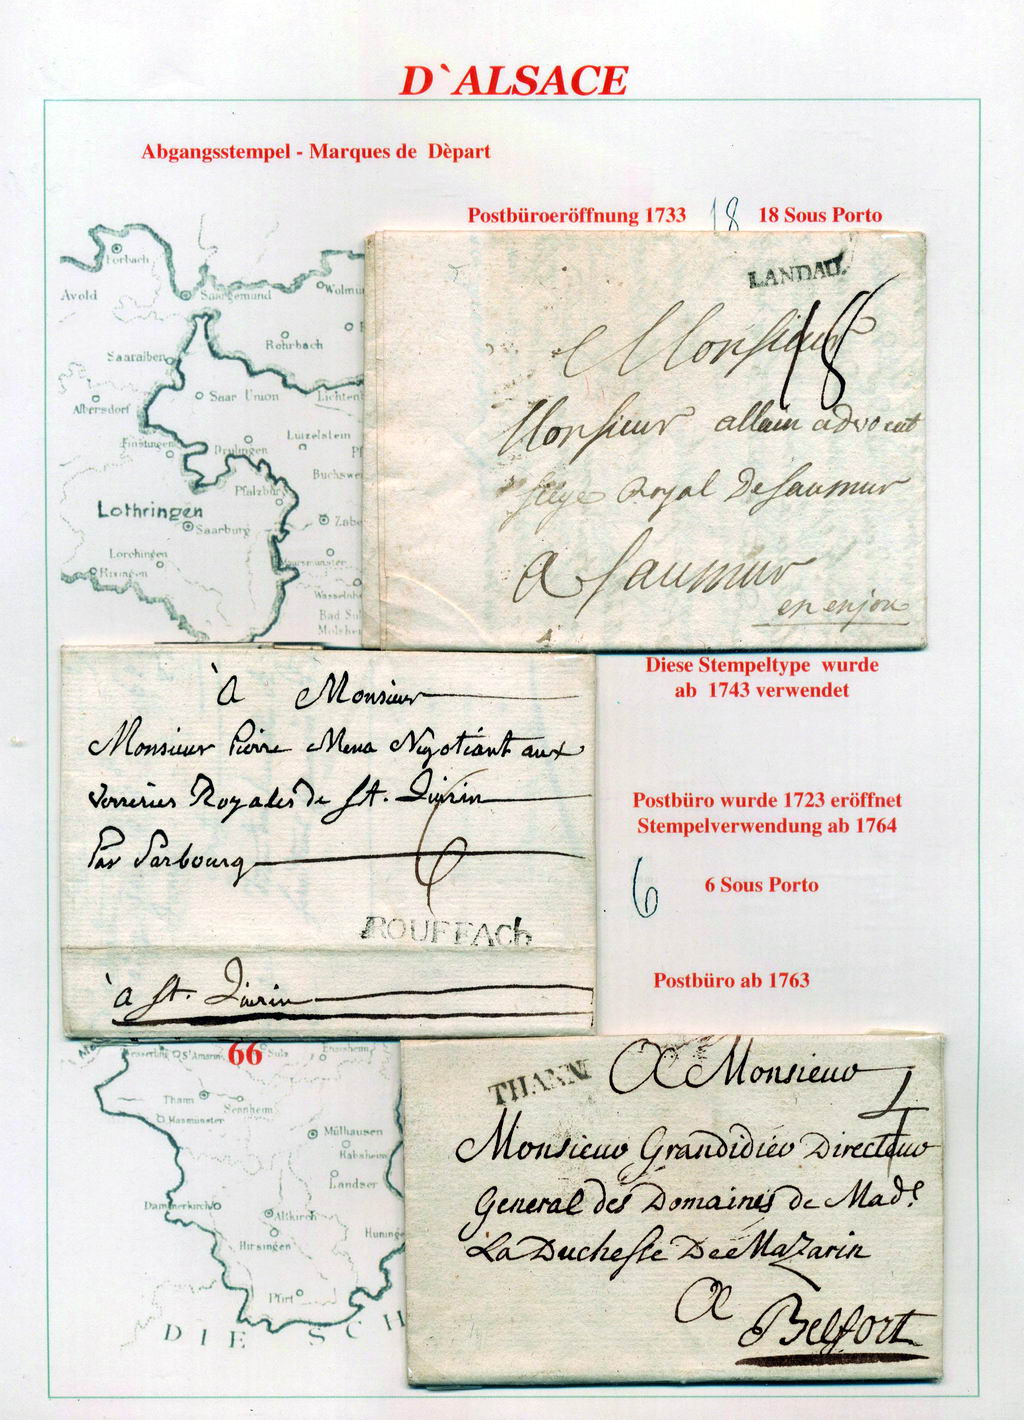 D`ALSACE
Abgangsstempel - Marques de Dèpart
Postbüroeröffnung 1733 18 18 Sous Porto
Forbach
Avold
Saargemund
Rohrbach
Saaralben
Saar Union
Lichten
Albersdorf
Finstingen
Drulingen
Lutzelstein
Buchswe
Pfalzburg
Lothringen
Saarburg
Zabe
Lorchingen
Rixingen
Wasselnh
Bad Sul
Molshe
LANDAU.
Monsieur
18
Monsieur allain advocat
siege Royal De Saumur
a Saumur
en enjou
Diese Stempeltype wurde
ab 1743 verwendet
à Monsieur
Monsieur Pierre Mena Negotiant aux
Verreries Royales de St. Quirin
Par Sarbourg
6
ROUFFACh
à St. Quirin
Postbüro wurde 1723 eröffnet
Stempelverwendung ab 1764
6 6 Sous Porto
Postbüro ab 1763
66
St Amarin
Sulz
Ensisheim
Thann
Sennheim
Masmünster
Mülhausen
Habsheim
Landser
Dammerkirch
Altkirch
Hirsingen
Huninge
Pfirt
DIE SCH
THANN
A Monsieur
4
Monsieur Grandidier Directeur
General des Domaines de Mad.e
La Duchesse De Mazarin
A
Belfort